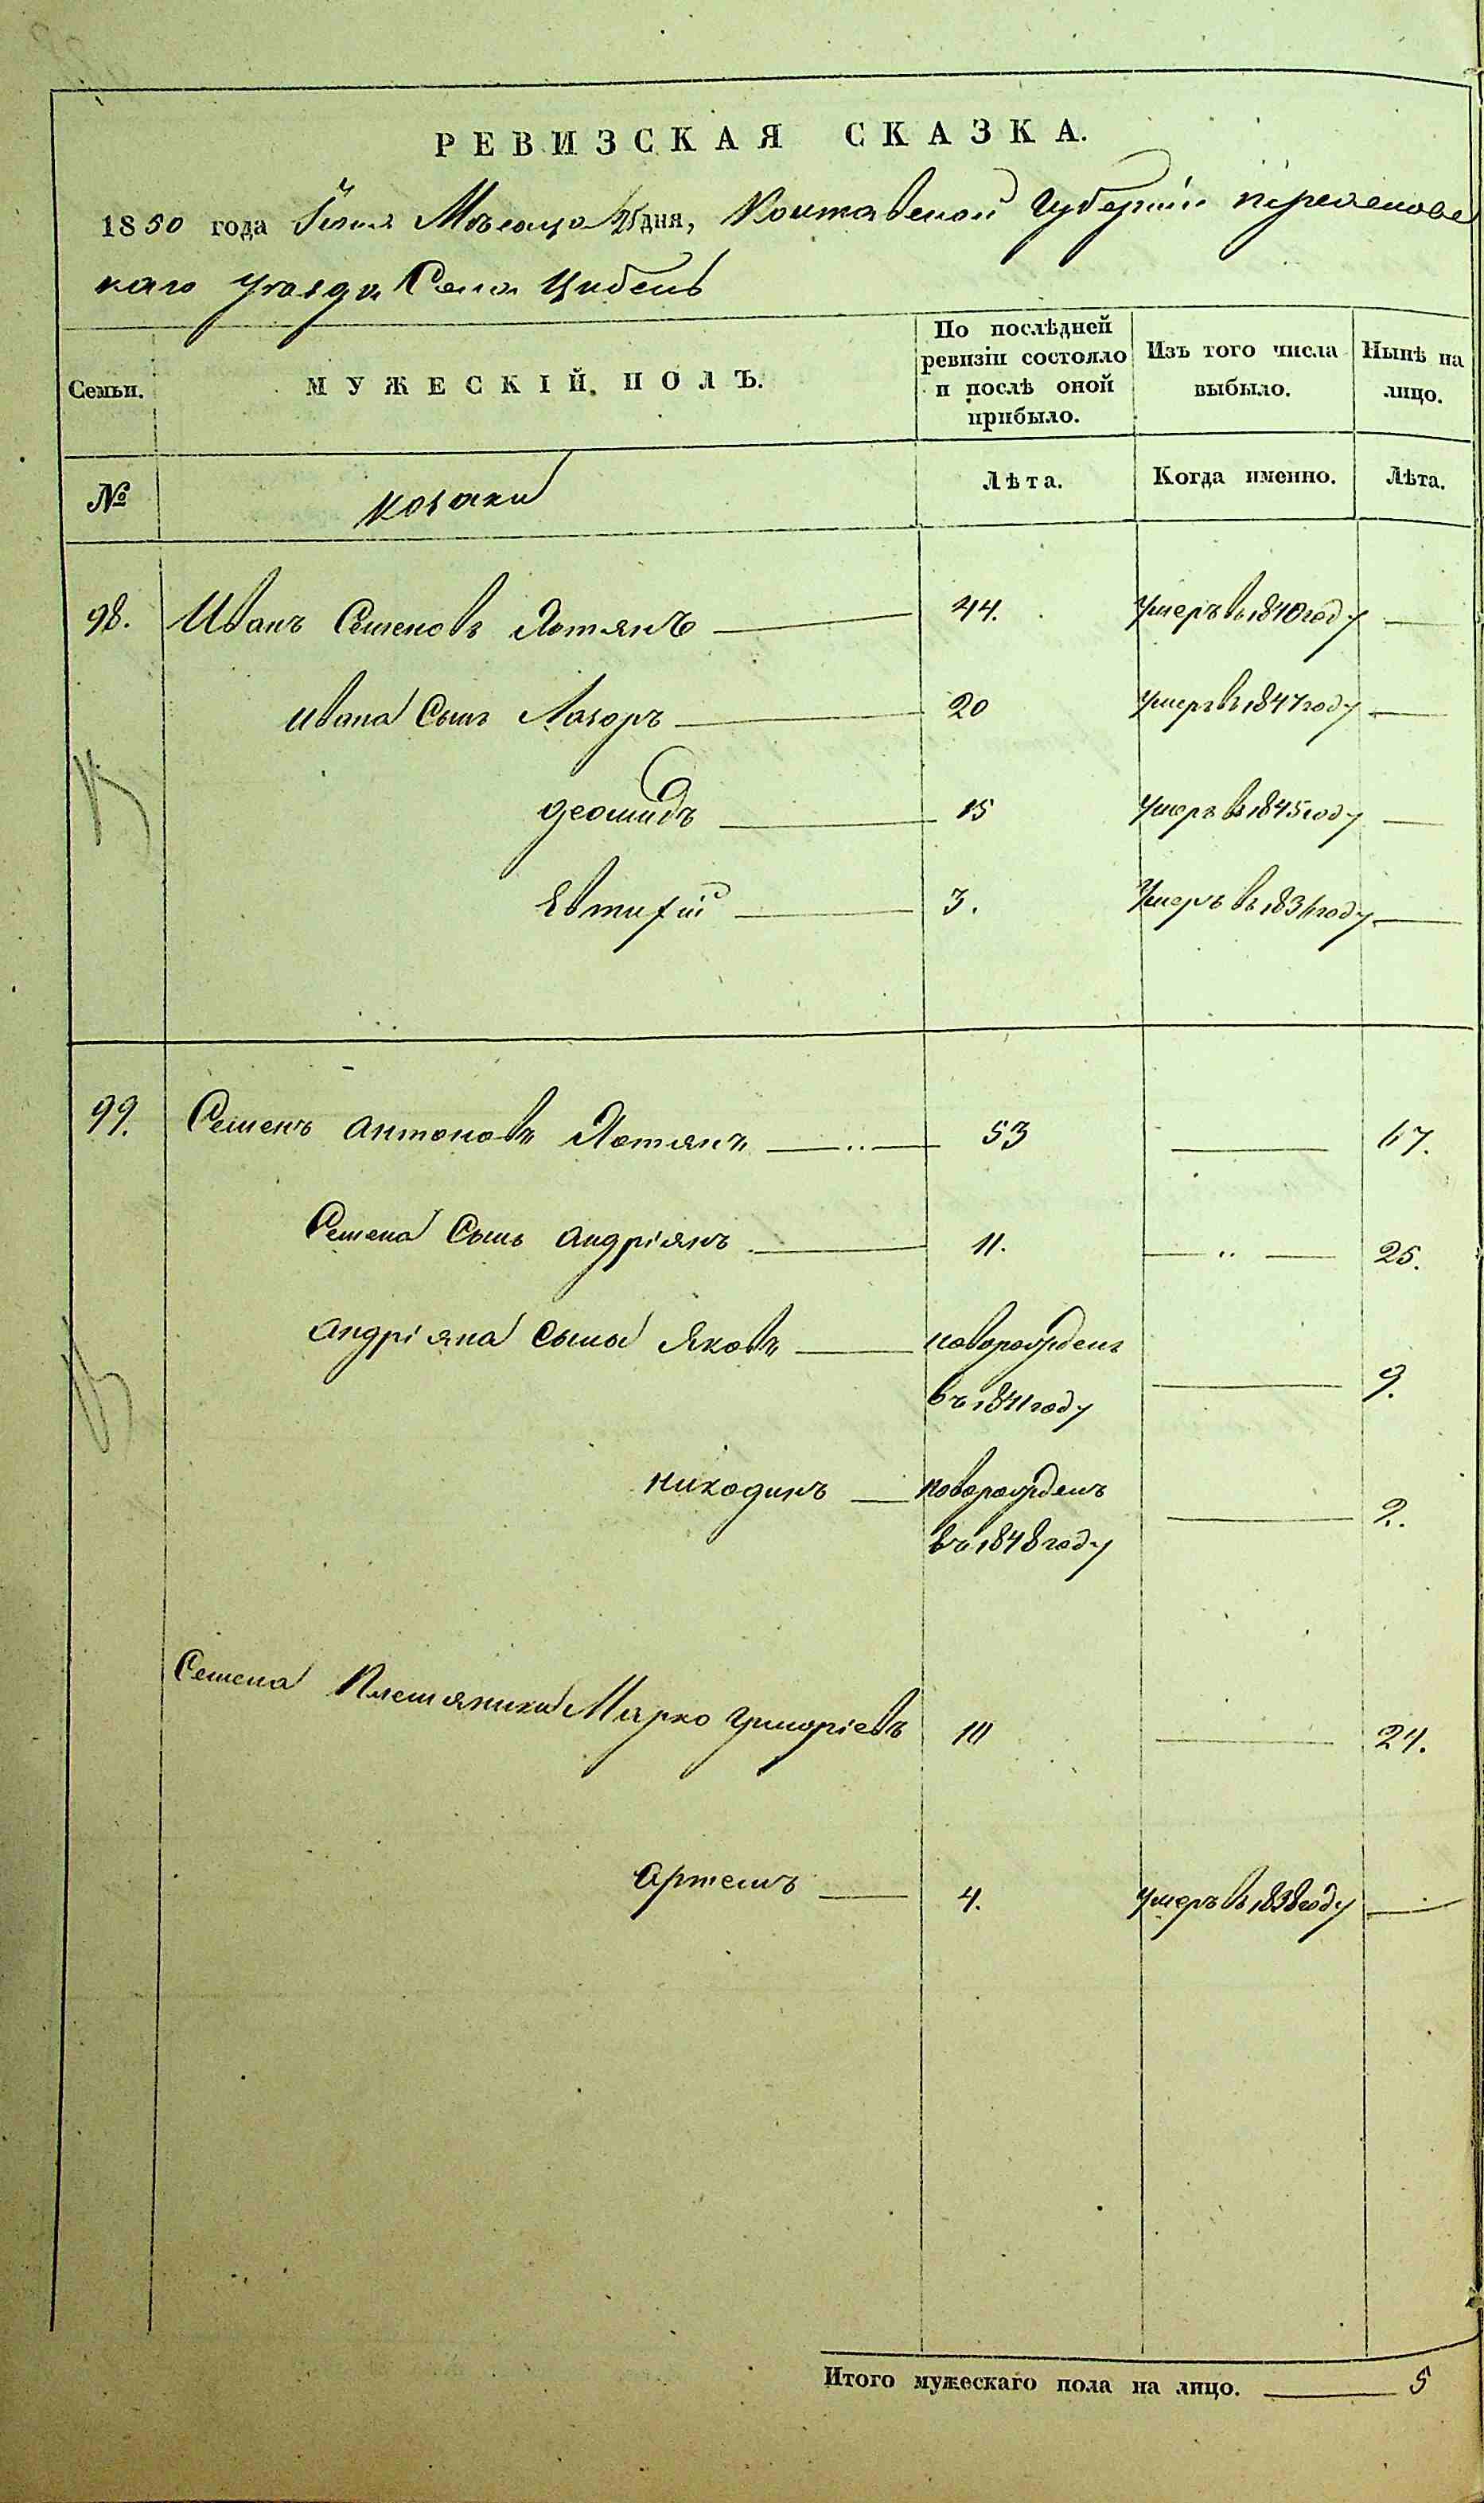 РЕВИЗСКАЯ СКАЗКА.
1850 года Юня Мѣсяца 25 дня, Полтавской Губернии переясловс
каго уезда Села Цибель
Семьи.
МУЖЕСКІЙ ПОЛЪ.
По послѣдней ревизіи состояло и послѣ оной прибыло.
Изъ того числа выбыло.
Нынѣ на лицо.
№
козаки
Лѣта.
Когда именно.
Лѣта.
98. Иванъ Семеновъ Лотянъ 44. умеръ въ 1840 году
Ивана Сынъ Лазоръ 20 умеръ въ 1847 году
деомидъ 15 умеръ въ 1845 году
Евтифій 3. умеръ въ 1834 году
99. Семенъ антоновъ Лотянъ 53 67.
Семена Сынъ андріянъ 11. 25.
андріяна Сыны Яковъ новорожденъ
въ 1841 году 9.
никодимъ новорожденъ
въ 1848 году 2.
Семена Племяники Марко григоріевъ 10 24.
артемъ 4. умеръ въ 1838 году
Итого мужескаго пола на лицо. 5